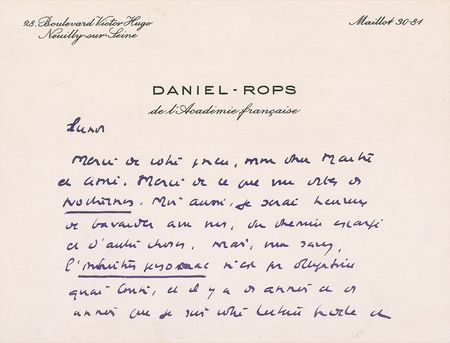 28. Boulevard Victor Hugo
Neuilly-sur-Seine
Maillot 30-81
DANIEL-ROPS
de l'Académie française
Lundi
Merci de votre mon cher Maître
et ami. Merci de ce que me dites de
Nocturnes. Moi aussi, je serai heureux
de bavarder avec vous, du chemin
et d'autres choses. Mais, vous savez,
l' n'est pas obligatoire
quai Conti, et il y a des années et des
années que je suis votre et